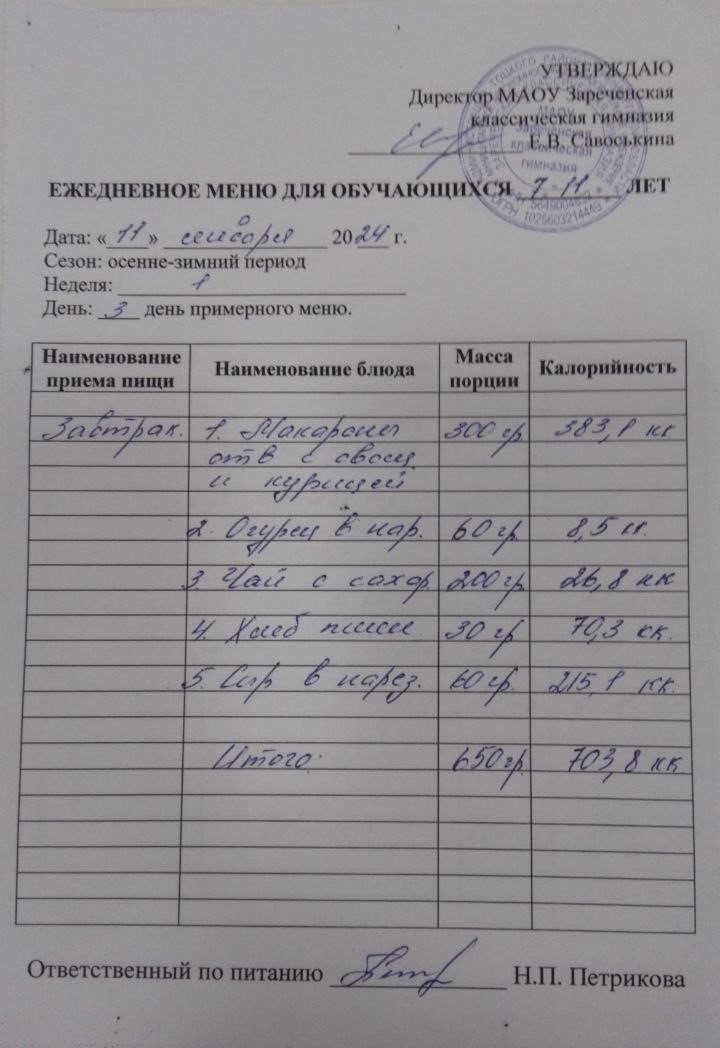 УТВЕРЖДАЮ
Директор МАОУ Зареченская
классическая гимназия
Е.В. Савоськина
МАОУ
Зареченская
классическая
гимназия
ОГРН 1025603214449
ЕЖЕДНЕВНОЕ МЕНЮ ДЛЯ ОБУЧАЮЩИХСЯ 7-11 ЛЕТ
Дата: « 11 » сентября 2024 г.
Сезон: осенне-зимний период
Неделя: 1
День: 3 день примерного меню.
Наименование приема пищи Наименование блюда Масса порции Калорийность
Завтрак. 1. Макароны 300 гр 383,1 кк
отв с овощ
и курицей
2. Огурец в нар. 60 гр 8,5 кк.
3. Чай с сахор. 200 гр 26,8 кк
4. Хлеб пшен. 30 гр 70,3 кк.
5. Сыр в нарез. 60 гр. 215,1 кк.
Итого: 650 гр. 703,8 кк.
Ответственный по питанию Н.П. Петрикова